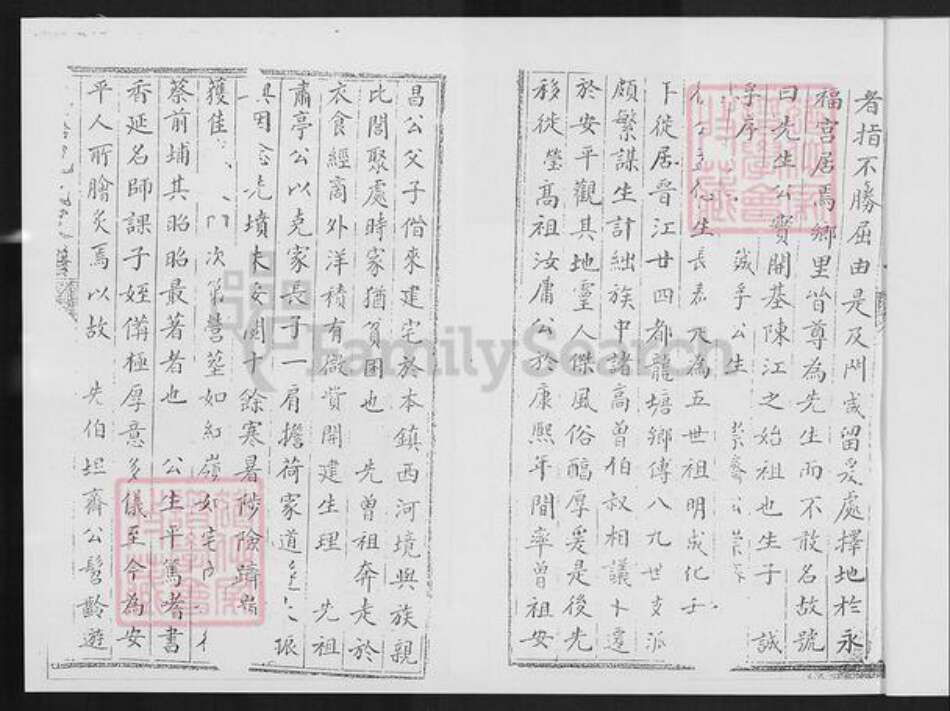 者指不勝屈由是及門或留爰處擇地於永
福宫居焉鄉里皆尊為先生而不敢名故號
曰先生公實開基陳江之始祖也生子 誠
孚序 誠孚公生
生長 為五世祖明成化壬
下徙居晋江廿四都龍塘鄉傳八九世支派
頗繁謀生計絀族中諸高曾伯叔相議卜遷
於安平觀其地靈人傑風俗醇厚爰是後先
移徙 高祖汝庸公於康熙年間率曾祖安
昌公父子偕來建宅於本鎮西河境與族親
比閭聚處時家猶貧困也 先曾祖奔走於
衣食經商外洋積有微貲開建生理 先祖
肅亭公以克家長子一肩擔荷家道 振
因念先墳未安閲十餘寒暑陟險躋
獲佳 次第營塋如紅嶺如宅
蔡前埔其昭昭最著者也 公生平篤嗜書
香延名師課子姪備極厚意多儀至今為安
平人所膾炙焉以故 先伯坦齋公髫齡遊
FamilySearch